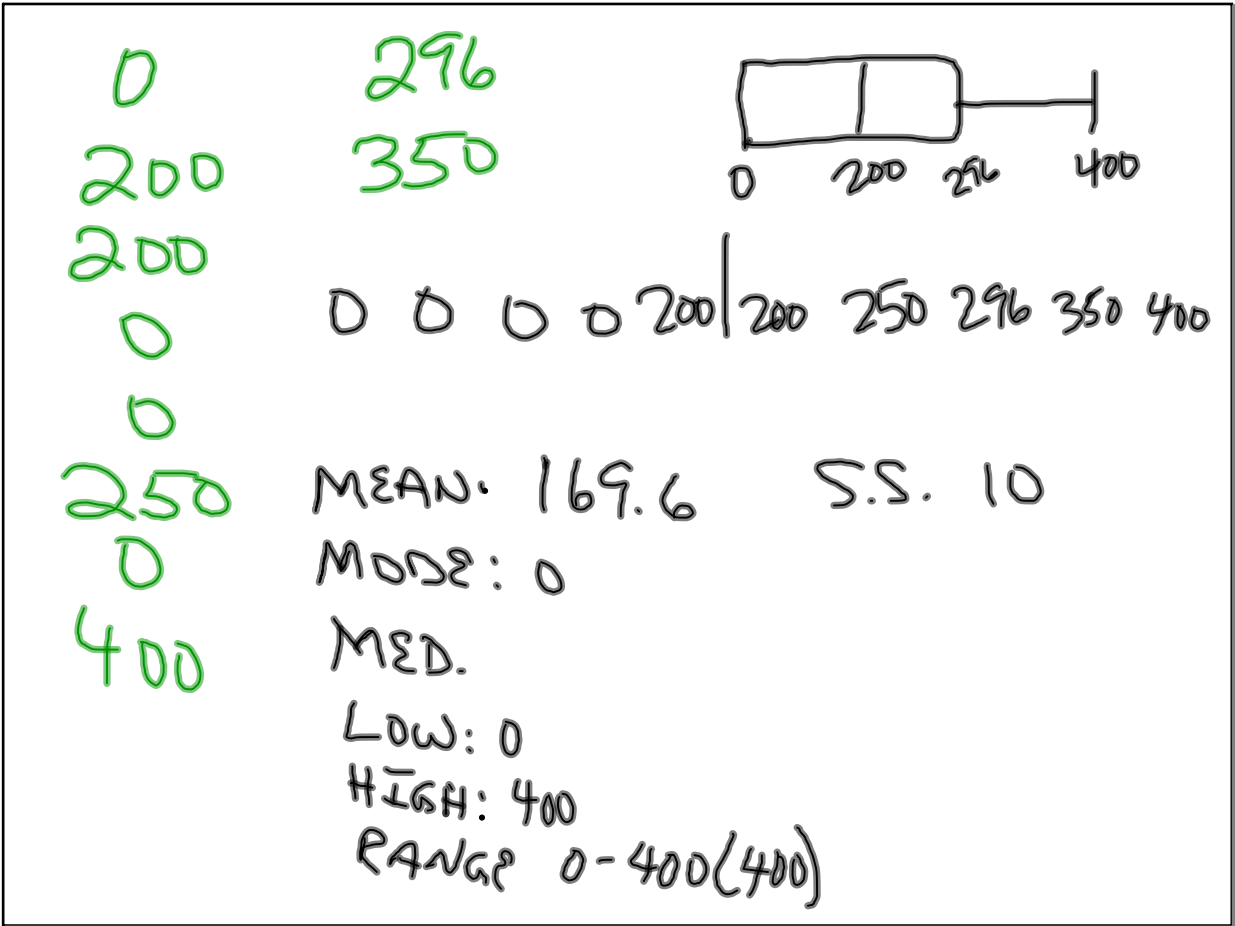 0
200
200
0
0
250
0
400
296
350
0 200 296 400
0 0 0 0 200 200 250 296 350 400
MEAN: 169.6 S.S. 10
MODE: 0
MED.
LOW: 0
HIGH: 400
RANGE 0-400(400)